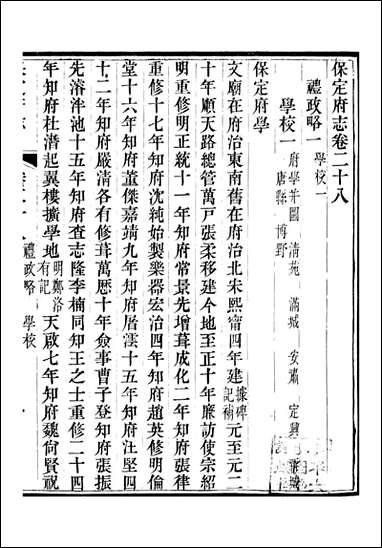 保定府志卷二十八
禮政略一 學校一
學校一 府學并圖 清苑 滿城 安肅 定興
唐縣 博野
保定府學
文廟在府治東南舊在府治北宋熙甯四年建據碑記補元至元二
十年順天路總管萬戸張柔移建今地至正十年廉訪使宗紹
明重修明正統十一年知府常景先增葺成化二年知府張律
重修十七年知府沈純始製樂器宏治四年知府趙英修明倫
堂十六年知府董傑嘉靖九年知府厝澐十五年知府汪堅四
十二年知府嚴清各有修葺萬歷十年僉事曹子登知府張振
先濬泮池十五年知府查志隆李楠同知王之士重修二十四
年知府杜潛起翼樓擴學地明鄭洛有記天啟七年知府魏尙賢視
禮政略 學校